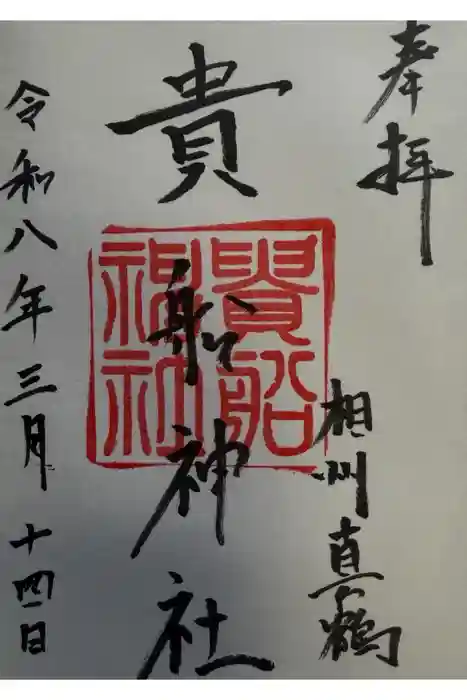 奉拝
相州真鶴
貴船神社
貴船
神社
令和八年三月十四日